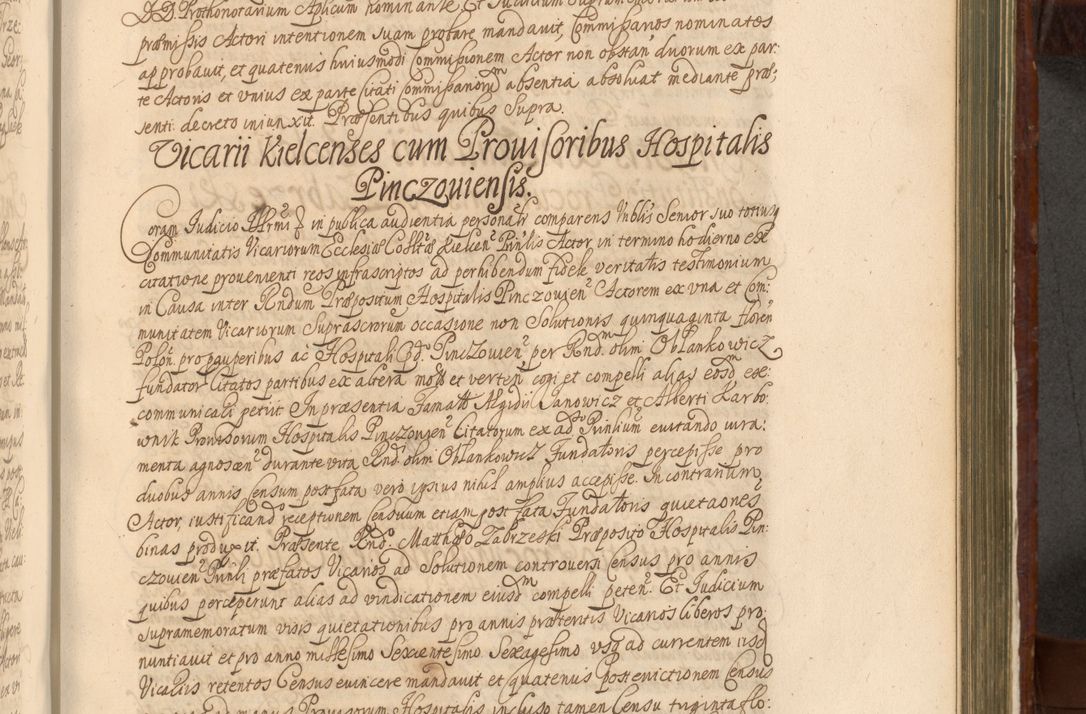 DD Prothonotarium Aplicum nominante Et Judicium
præmissis Actori intentionem suam probare mandavit, Commissarios nominatos
approbavit, et quatenus huiusmodi Commissionem Actor non obstan duorum ex par:
te Actoris et unius ex parte Citati Commissariorũ absentia absolvat mediante præ:
senti decreto iniunxit. Præsentibus quibus Supra.
Vicarii Kielcenses cum Provisoribus Hospitalis
Pinczoviensis.
Coram Judicio in publica audientia personalr comparens Nblis Senior suo totiusq
Communitatis Vicariorum Ecclesiæ Collttæ Kielcen Prinlis Actor, in termino hodierno ex
citatione provenienti reos infrascriptos ad perhibendum fidele veritatis testimonium
in Causa inter Rndum Præpositum Hospitalis Pinczovien Actorem ex una et Com:
munitatem Vicariorum Suprascrorum occasione non Solutionis quinquaginta floren
Polon. pro pauperibus ac Hospitali Pinczovien per Rnd. olim Oblankowicz
fundator Citatos partibus ex altera et verten cogi et compelli alias eosd ex:
communicari petiit In præsentia Famatt Ægidii Janowicz et Alberti Karbo:
wnik Provisorum Hospitalis Pinczovien Citatorum ex ad Prinlium evitando iura:
menta agnoscen durante vita Rnd. olim Oblankowicz Fundatoris percepisse pro
duobus annis Censum post fata vero ipsius nihil amplius accepisse. In contrarium
Actor, iustificand receptionem Censuum etiam post fata Fundatoris quietaones
binas produxit. Præsente Rnd. Matthæo Zabrzeski Præposito Hospitalis Pin:
czovien Prinli præfatos Vicarios ad Solutionem controversi Census pro annis
quibus perceperunt alias ad vindicationem eiusd compelli peten. Et Judicium
Supramemoratum visis quietationibus pro annis præteritis Vicarios liberos pro:
nuntiavit et pro anno millesimo Sexcentesimo Sexagesimo usq ad currentem iisd
Vicariis retentos Census evincere mandavit et quatenus Post evictionem Census
Provisorum Hospitalis incluso tamen Censu triginta flo: